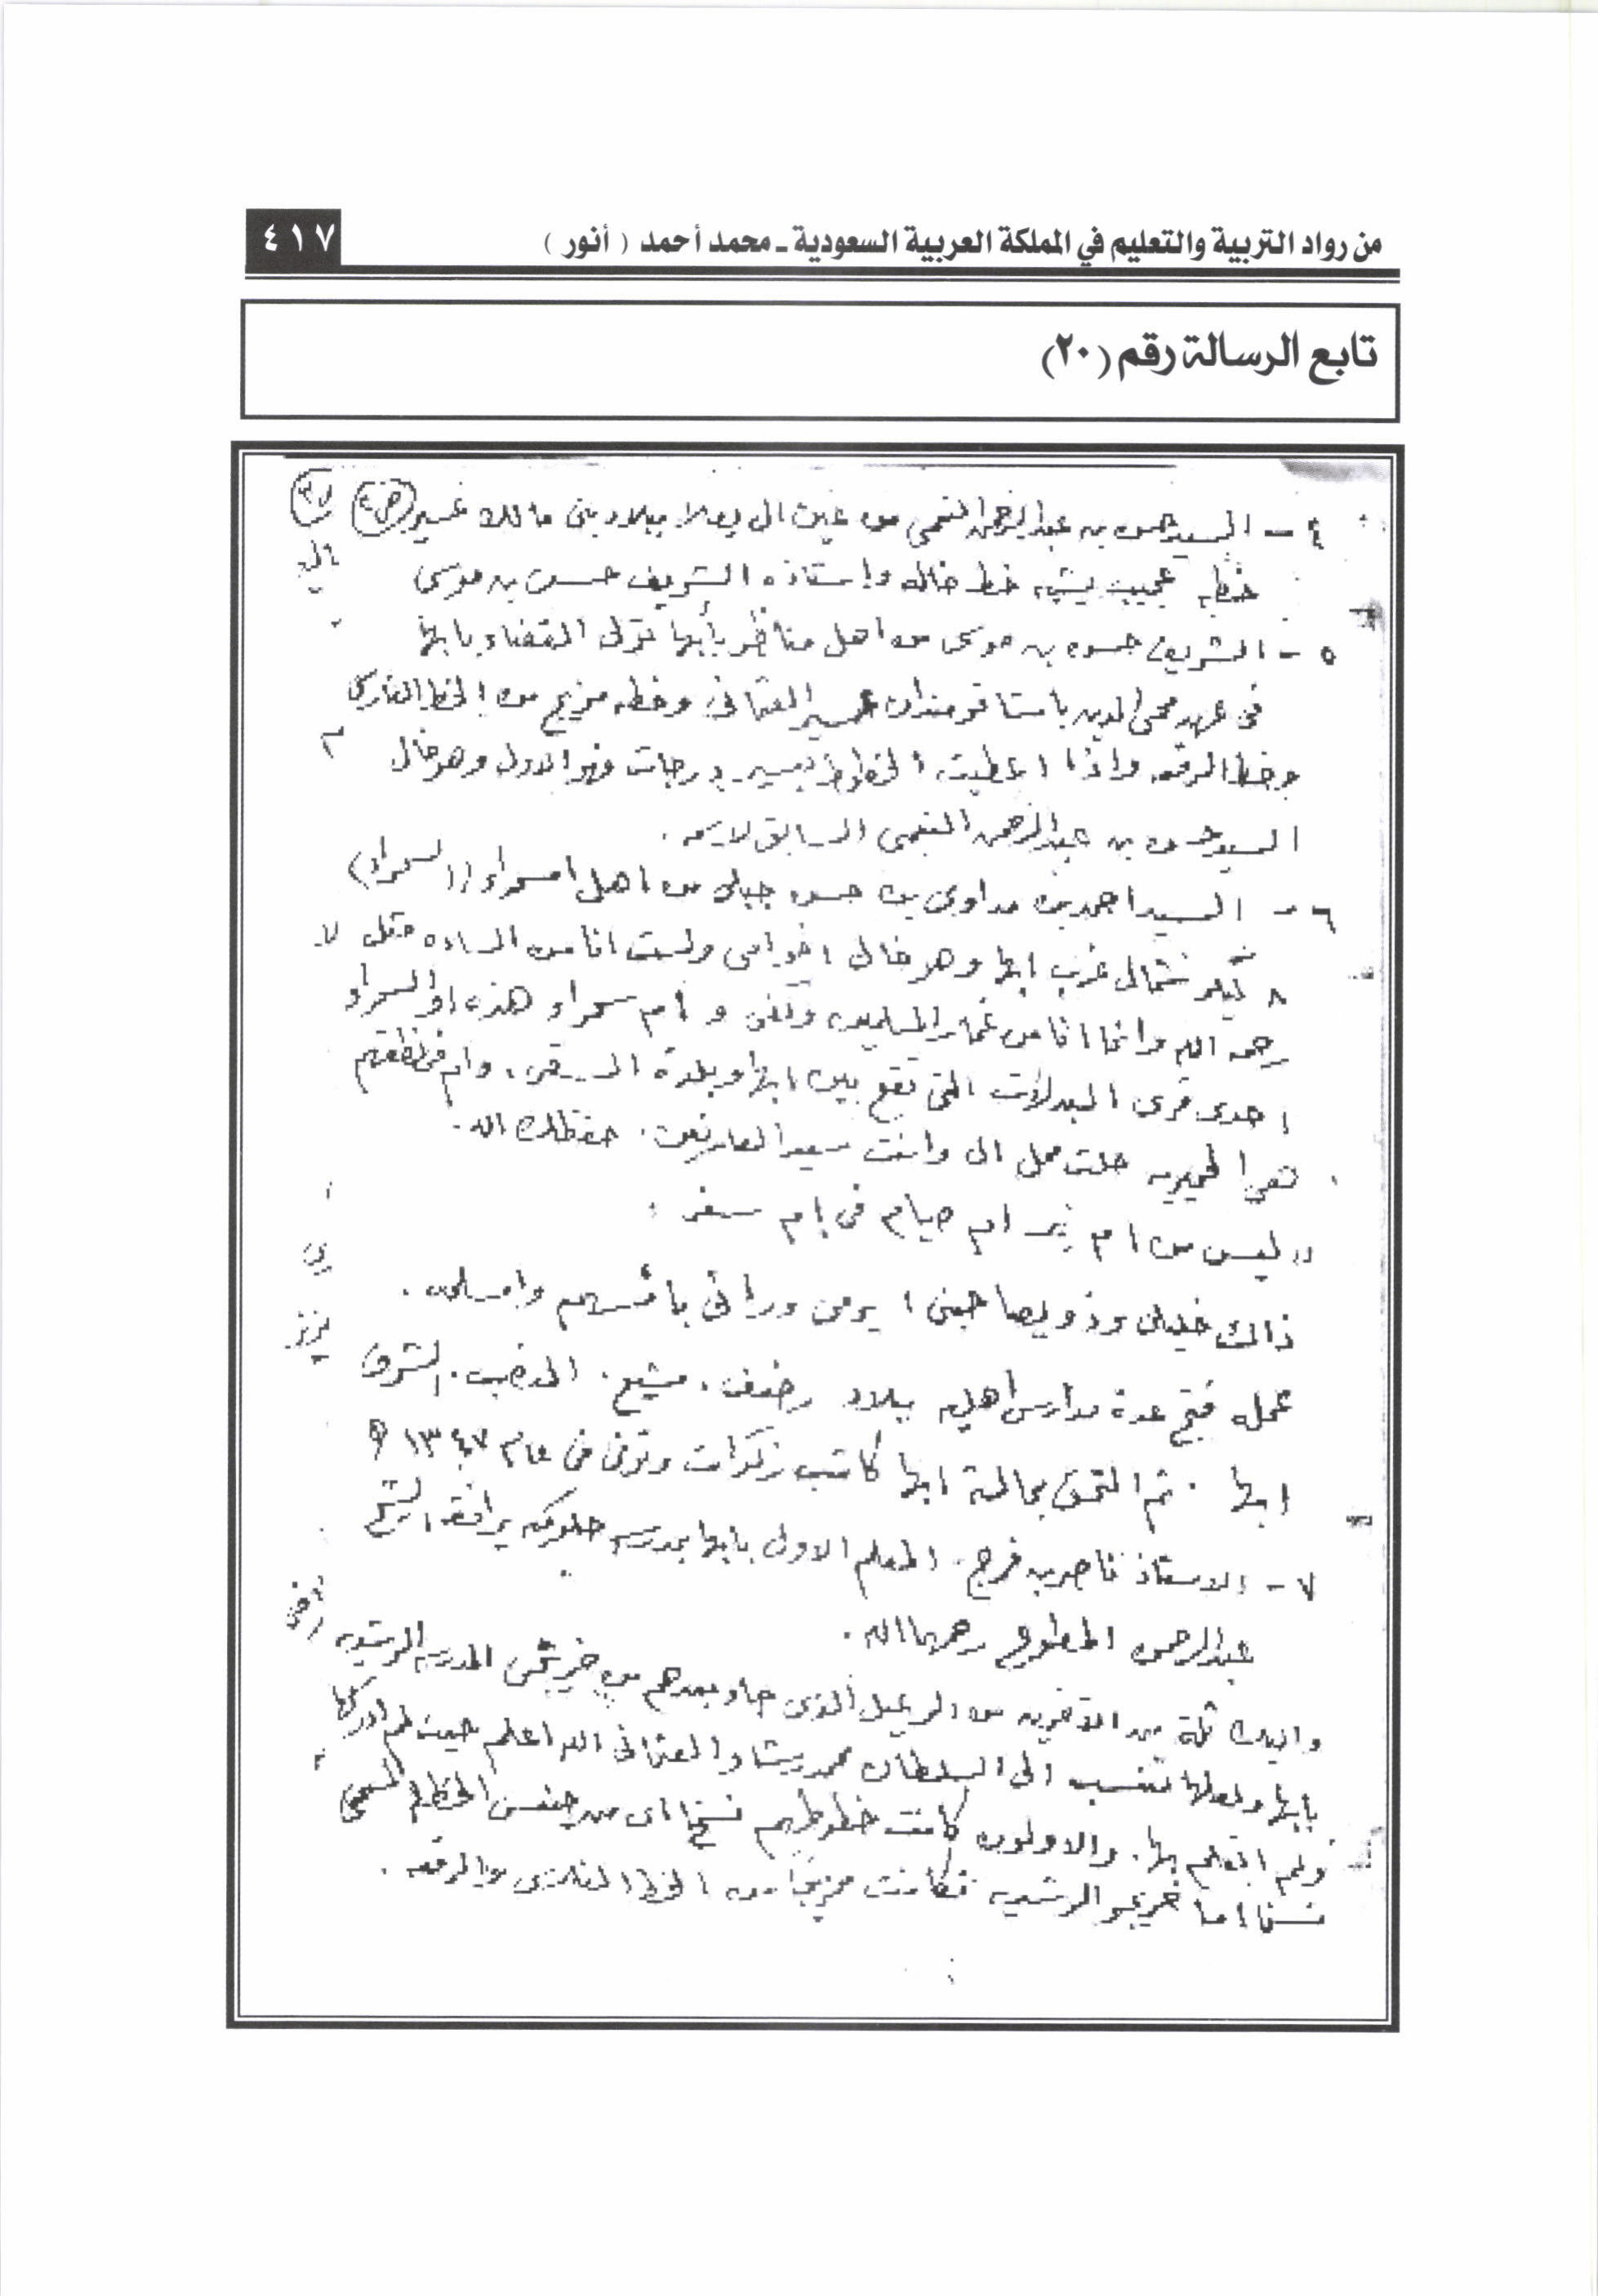 من رواد التربية والتعليم في المملكة العربية السعودية ـ محمد أحمد ( أنور )
٤١٧
تابع الرسالة رقم (٢٠)
٤ - السيد حسن بن عبدالرحمن النعمي من عين ال يعلا ببلاد بني مالك عسير (ص٤)
خطه عجيب يشبه خط خاله واستاذه الشريف حسن بن موسى
٥ - الشريف حسن بن موسى من اهل مناظر بأبها تولى القضاء بابها
في عهد محي الدين باشا قومندان عسير العثماني وخطه مزيج من الخط الفارسي
وخط الرقعه واذا اعطيت الخطوط درجات فهو الاول وهو خال
السيد حسن بن عبدالرحمن النعمي السابق لاسمه .
٦ - السيد احمد بن مداوي بن حسن جبلي من اهل امسحراء (السحراء)
٨ كيلو شمال غرب ابها وهو خال اخوامي ولست انا من الساده مثلى لا
رحمه الله وانما انا من عمار المسلمين وكفى و أم سحراء هذه او السحراء
احدى قرى البدلات التي تقع بين ابها وبلدة السقى ، وام في نطقهم
هي الحميريه حلت محل ال وانت سيد العارفين . حفظك الله .
" ليس من ام بر ام صيام في ام سفر "
ذاك خليلي وذو يصاحبني ، يرمي ورائي بامسهم وامسلمه .
عمل فتح عدة مدارس اهليه ببلاد رضف . مشيع . المذهب . الشرف
ابها . ثم التحق بمالية ابها كاتب زكوات وتوفى في عام ١٣٤٧ هـ
٧ - الاستاذ ناصر بن فرج . المعلم الاول بابها بمدرسه حكوميه يرافقه الشيخ
عبدالرحمن المطوع رحمهما الله .
واليك ثلة من الآخرين من الرعيل الذي جاء بعدهم من خريجي المدرسه الرشديه
بابها ولعلها تنسب الى السلطان محمد رشاد العثماني الله اعلم حيث لم ادركها
ولم اتعلم بها . والاولون كانت خطوطهم نسخا اى من جنس الخط المسمى
نسخا اما خريجو الرشديه فكانت مزيجا من الخط الفارسي والرقعه .